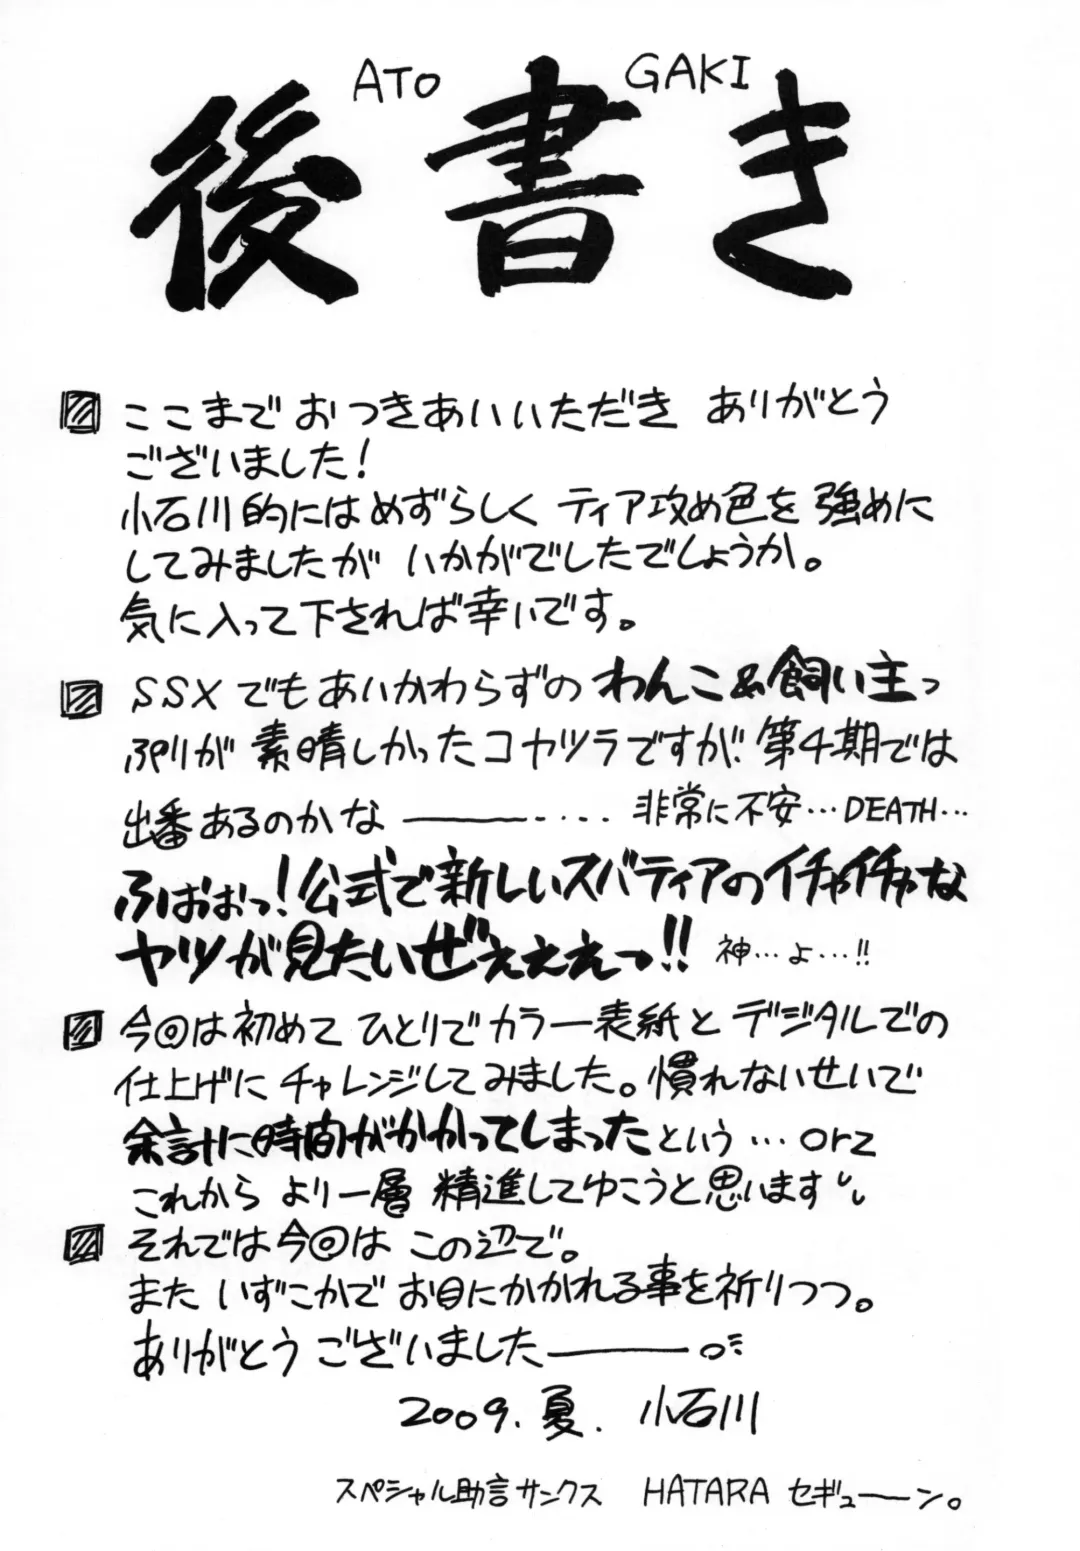 ATO GAKI
後書き
ここまで おつきあいいただき ありがとう
ございました!
小石川的には めずらしく ティア攻め色を 強めに
してみましたが いかがでしたでしょうか。
気に入って下されば幸いです。
SSX でもあいかわらずの わんこ&飼い主っ
ぷりが 素晴しかったコヤツラですが、第4期では
出番あるのかな ―――‐‐‐‐ 非常に不安…DEATH…
ふぉぉぉっ!公式で新しいスバティアのイチャイチャな
ヤツが見たいぜぇぇぇーっ!! 神…よ…!!
今回は初めて ひとりで カラー表紙と デジタルでの
仕上げに チャレンジしてみました。慣れないせいで
余計に時間がかかってしまったという…orz
これから より一層 精進してゆこうと思います
それでは今回は この辺で。
また いずこかで お目にかかれる事を祈りつつ。
ありがとう ございました―――。
2009.夏. 小石川
スペシャル助言サンクス HATARA セギューーン。